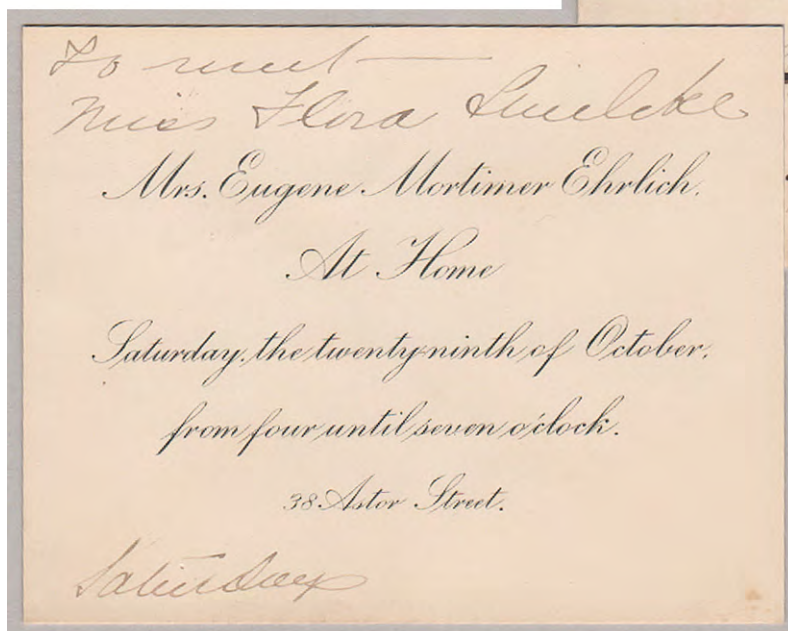 To meet
Miss Flora
Mrs. Eugene Mortimer Ehrlich.
At Home
Saturday, the twenty ninth of October,
from four until seven o'clock.
38 Astor Street.
Saturday